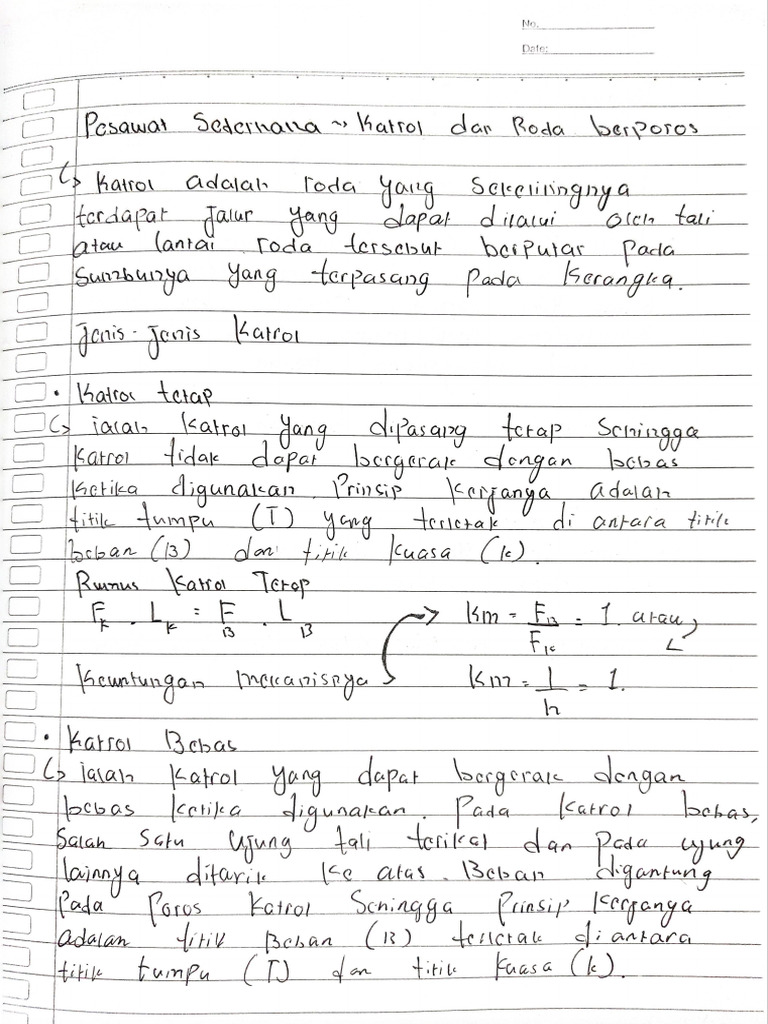 No.
Date:
Pesawat Sederhana ~> Katrol dan Roda berporos
↳ Katrol adalah roda yang sekelilingnya
terdapat jalur yang dapat dilalui oleh tali
atau lantai roda tersebut berputar pada
yang terpasang pada kerangka.
Jenis-Jenis Katrol
• Katrol tetap
↳ ialah Katrol yang dipasang tetap sehingga
Katrol tidak dapat bergerak dengan bebas
ketika digunakan. Prinsip kerjanya adalah
titik tumpu (T) yang terletak di antara titik
beban (B) dan titik kuasa (k).
Rumus Katrol Tetap
F_K . L_K = F_B . L_B
Km = F_B/F_K = 1. atau,
Keuntungan mekanisnya
Km = l/h = 1.
• Katrol Bebas
↳ ialah Katrol yang dapat bergerak dengan
bebas ketika digunakan. Pada Katrol bebas,
Salah satu ujung tali terikat dan pada ujung
lainnya ditarik ke atas. Beban digantung
Pada Poros Katrol Sehingga Prinsip Kerjanya
adalah titik Beban (B) terletak di antara
titik tumpu (T) dan titik kuasa (k).